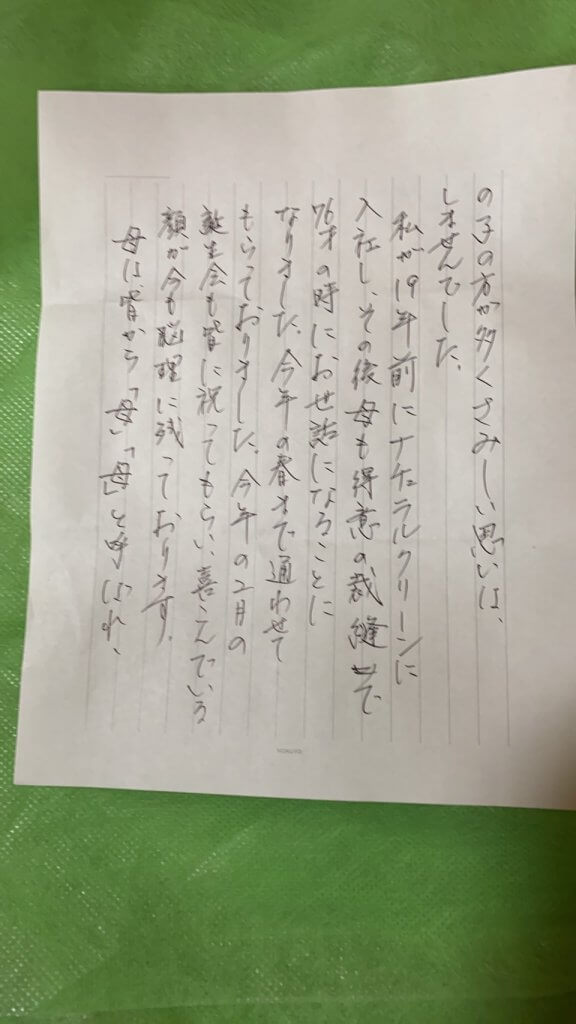 の子の方が多くさみしい思いは、
しませんでした。
私が19年前にナチュラルクリーンに
入社し、その後母も得意の裁縫で
76才の時にお世話になることに
なりました。今年の春まで通わせて
もらっておりました。今年の2月の
誕生会も皆に祝ってもらい、喜んでいる
顔が今も脳理に残っております。
母は、皆から「母」「母」と呼ばれ、
KOKUYO